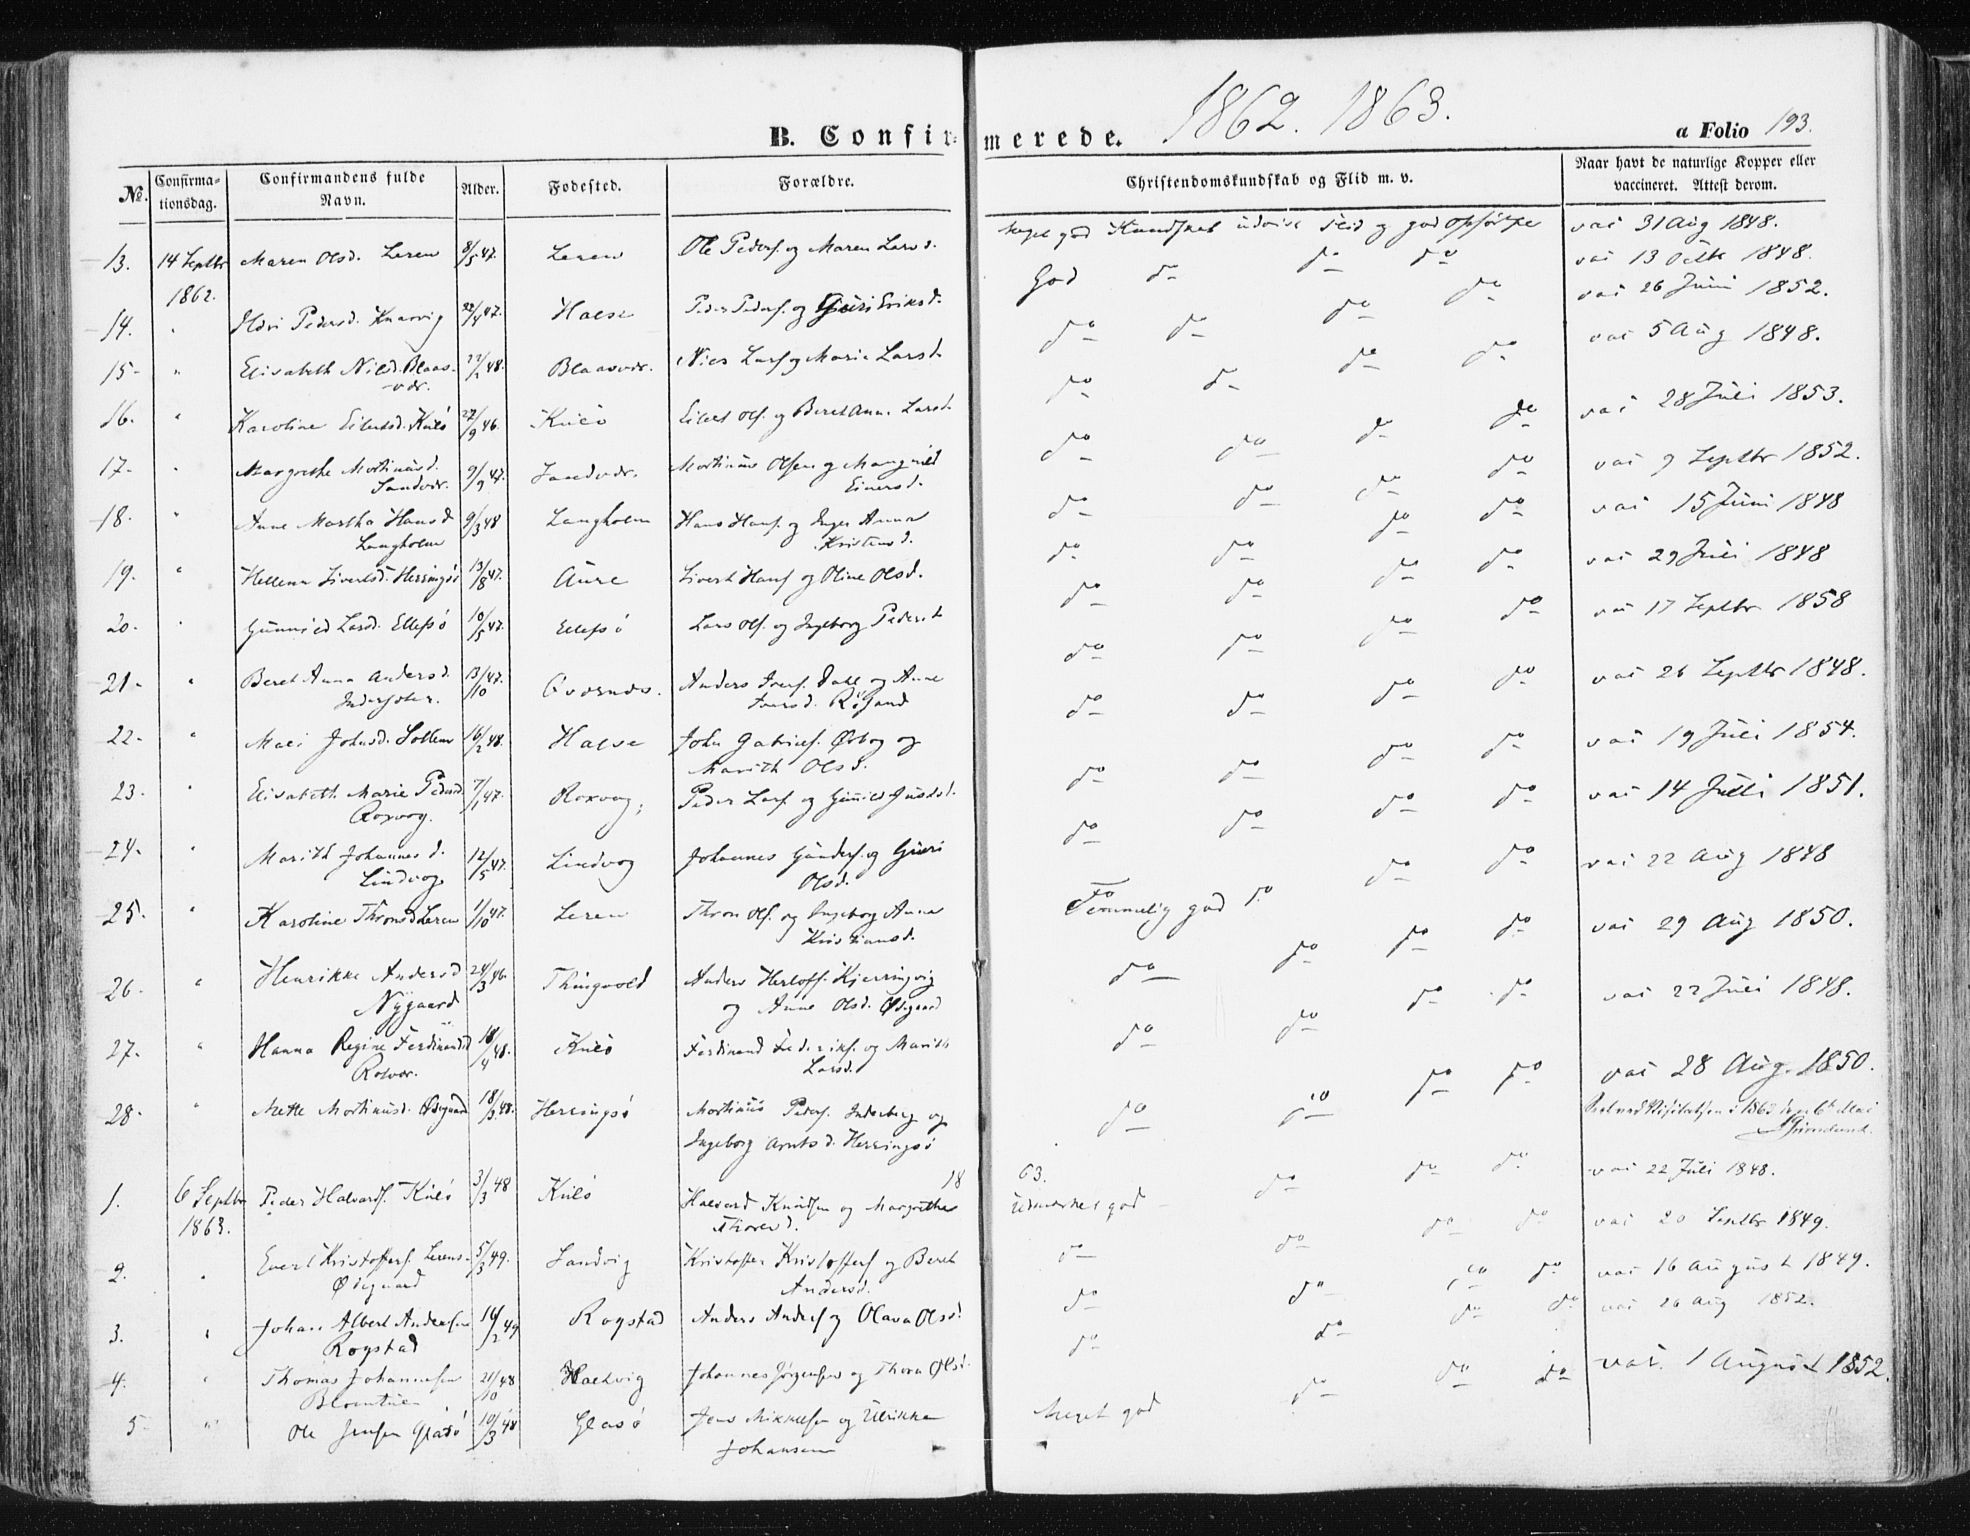 1862. 1863.
B. Confirmerede.
a Folio 193.
No. Confirmationsdag. Confirmandens fulde Navn. Alder. Fødested. Forældre. Christendomskundskab og Flid m. v. Naar havt de naturlige Kopper eller vaccineret. Attest derom.
13. 14 Septbr 1862. Maren Olsd. Leren 8/5 47. Leren Ole Peders. og Maren Larsd. Meget god Kundskab udvist Flid og god Opførsel vac 31 Aug 1848.
14. " Pedersd. Knarvig 22/4 47. Halse Peder Peders. og Guri Eriksd. God do do do vac 13 Octb 1848.
15. " Elisabeth Nilsd. Blaasvær. 22/2 48. Blaasvær. Niels Lars. og Marie Larsd. do do do do vac 26 Juni 1852.
16. " Karoline Eilertsd. Kulø 27/9 46. Kulø Eilert Ols. og Beret Anna Larsd. do do do do vac 5 Aug 1848.
17. " Margrethe Mortinusd. Sandvær. 9/9 47. Sandvær. Mortinus Olsen og Mangnild Einersd. do do do do vac 28 Juli 1853.
18. " Anne Martha Hansd. Langholm 9/3 48 Langholm Hans Hans. og Inger Anna Kristensd. do do do do vac 9 Septbr 1852.
19. " Hellena Siverts d. Herringsø 13/8 47. Aure Sivert Hans. og Oline Olsd. do do do do vac 15 Juni 1848
20. " Gunnild Larsd. Ellefsø 10/5 47. Ellefsø Lars Ols. og Ingeborg Pedersd. do do do do vac 29 Juli 1848
21. " Beret Anna Andersd. 13/10 47. Anders Dahl og Anne Iversd. Røsand do do do do vac 17 Septbr 1858
22. " Mali Johnsd. Sollem 16/2 48. Halse John Gabriels. Ørbog og Marith Olsd. do do do do vac 26 Septbr 1848.
23. " Elisabeth Marie Pedersd. Roxvog. 7/1 47. Roxvog, Peder Lars. og Gunild do do do do vac 19 Juli 1854.
24. " Marith Johannesd. Lindvog 12/5 47. Lindvog Johannes Gunders. og Guri Olsd. do do do do vac 14 Juli 1851.
25. " Karoline Thronsd. Leren 1/10 47. Leren Thron Ols. og Ingeborg Anna Kristiansd. Temmelig god do do do vac 22 Aug 1848
26. " Henrikke Andersd. Nygaard 24/3 46. Thingvold Anders Herlofs. Kjerringvig og Anne Olsd. Ødegaard do do do do vac 29 Aug 1850.
27. " Hanna Regine Ferdinandsd. 18/4 48. Kulø Ferdinand Frederiks. og Marith Larsd. do do do do vac 22 Juli 1848.
28. " Mette Mortinusd. Ødegaard 18/3 48. Herringsø Mortinus Peders. Inderberg og Ingeborg Arntsd. Herringsø do do do do vac 28 Aug. 1850.
1863.
1. 6 Septbr 1863. Peder Halvards. Kulø 3/3 48 Kulø Halvard Knudsen og Margrethe Thoresd. Udmerket god do do do vac 22 Juli 1848.
2. " Evert Kristoffers. Lerens-Ødegaard 5/3 49. Sandvig Kristoffer Kristoffers. og Beret Andersd. do do do do vac 20 Septbr 1849.
3. " Johan Albert Andersen Rogstad 14/2 49 Rogstad Anders Anders. og Olava Olsd. do do do do vac 16 August 1849.
4. " Thomas Johannesen 21/10 48 Johannes Jørgensen og Thora Olsd. do do do do vac 26 Aug 1852.
5. " Ole Jensen Glasø 10/3 48 Glasø Jens Mikkelsen og Ulrikke Johansen Meget god do do do vac. 1 August 1852.